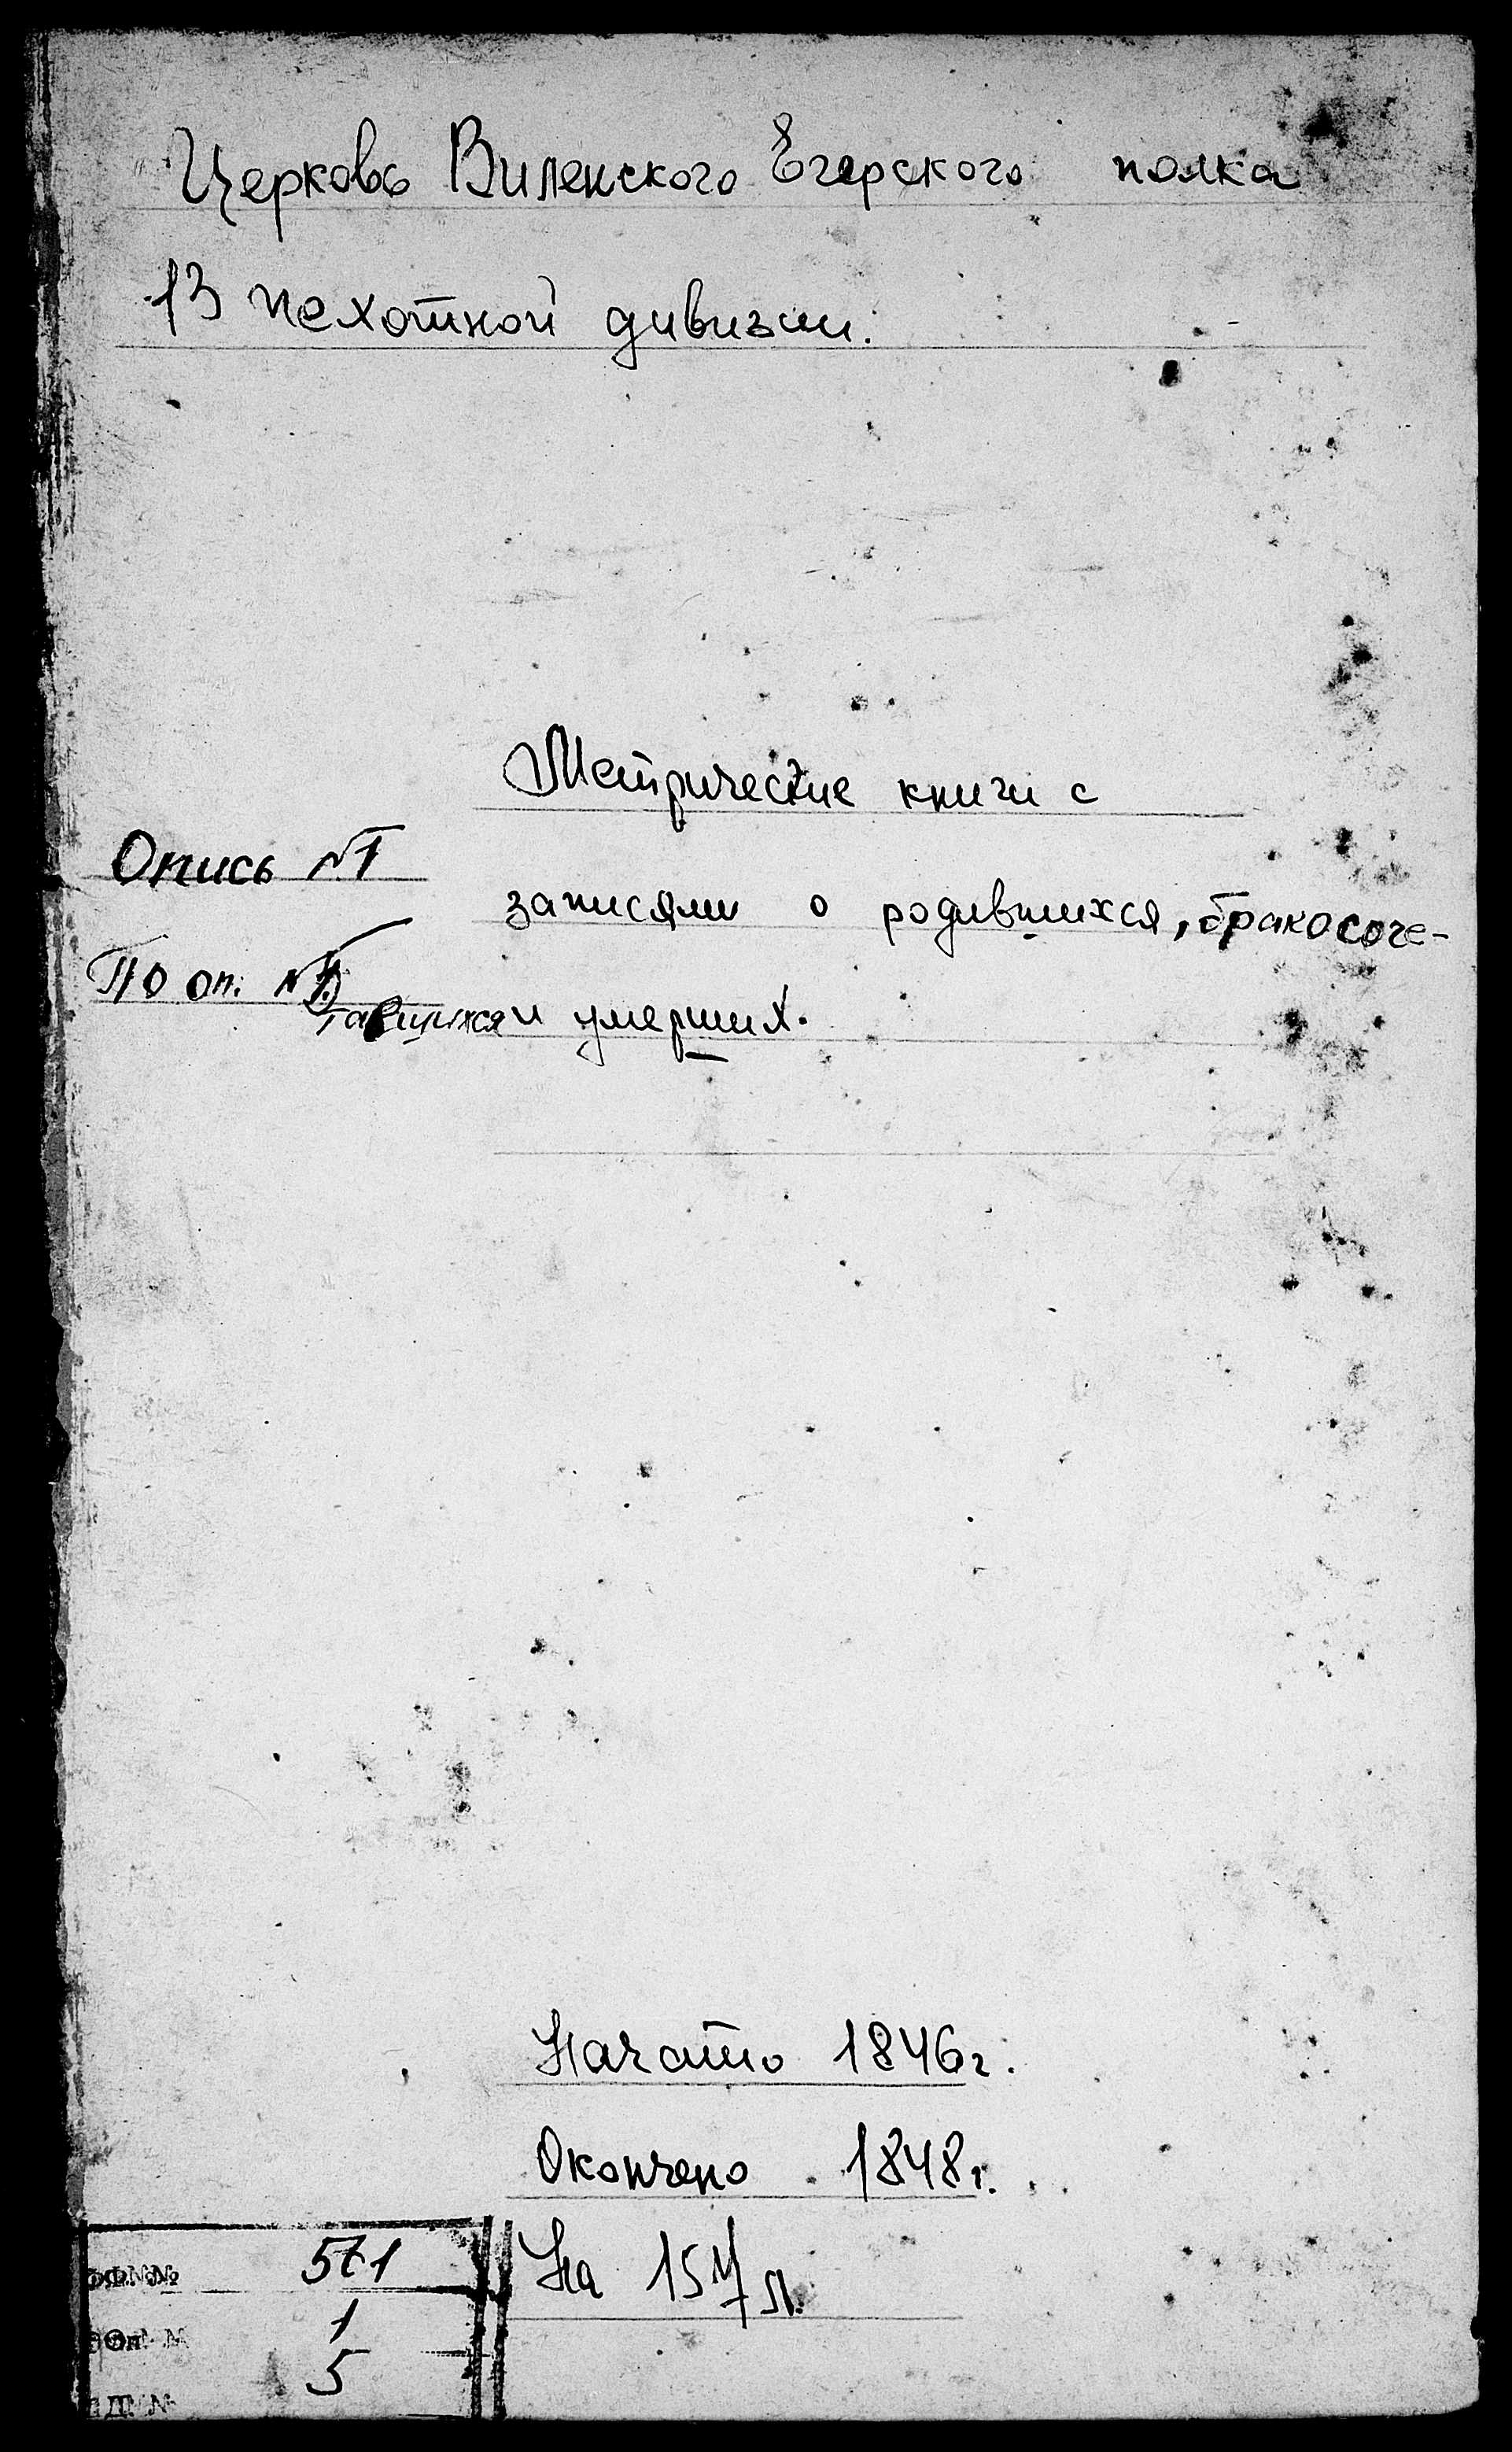 Церковь Виленского Егерского полка
13 пехотной дивизии.
Метрические книги с
Опись №1
записями о родившихся, бракосоче-
По оп. №
тавшихся и умерших.
Начато 1846 г.
Окончено 1848 г.
На 157 л.
Ф. № 571
Оп. № 1
Д. № 5